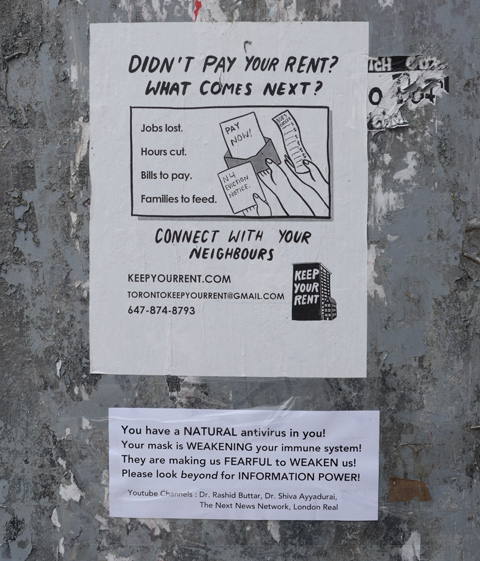 DIDN'T PAY YOUR RENT?
WHAT COMES NEXT?
Jobs lost.
Hours cut.
Bills to pay.
Families to feed.
PAY
NOW!
N4
EVICTION
NOTICE.
CONNECT WITH YOUR
NEIGHBOURS
KEEPYOURRENT.COM
TORONTOKEEPYOURRENT@GMAIL.COM
647-874-8793
KEEP
YOUR
RENT
You have a NATURAL antivirus in you!
Your mask is WEAKENING your immune system!
They are making us FEARFUL to WEAKEN us!
Please look beyond for INFORMATION POWER!
Youtube Channels : Dr. Rashid Buttar, Dr. Shiva Ayyadurai,
The Next News Network, London Real